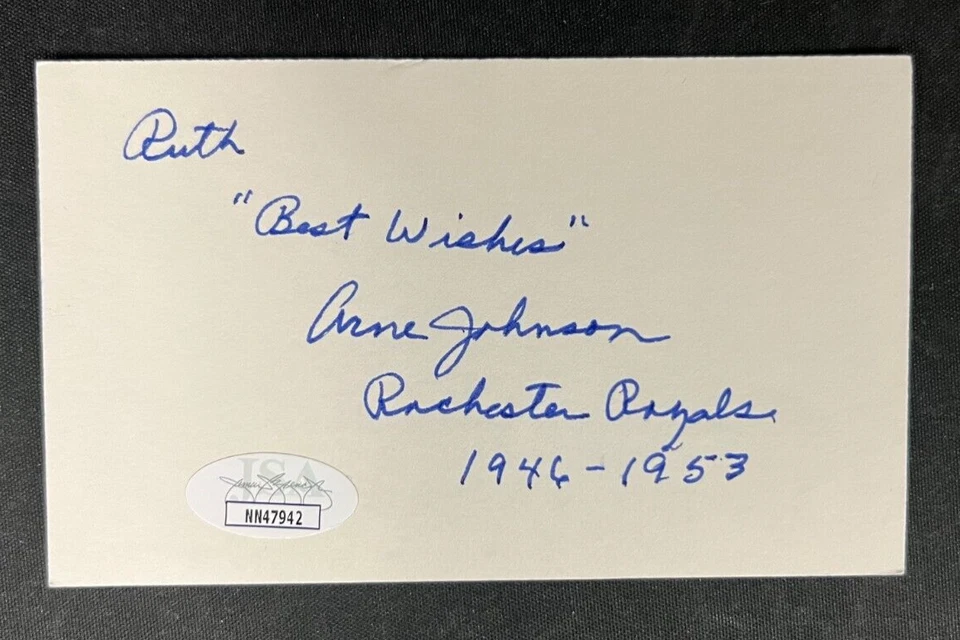 Ruth
"Best Wishes"
Arne Johnson
Rochester Royals
1946-1953
JSA
NN47942